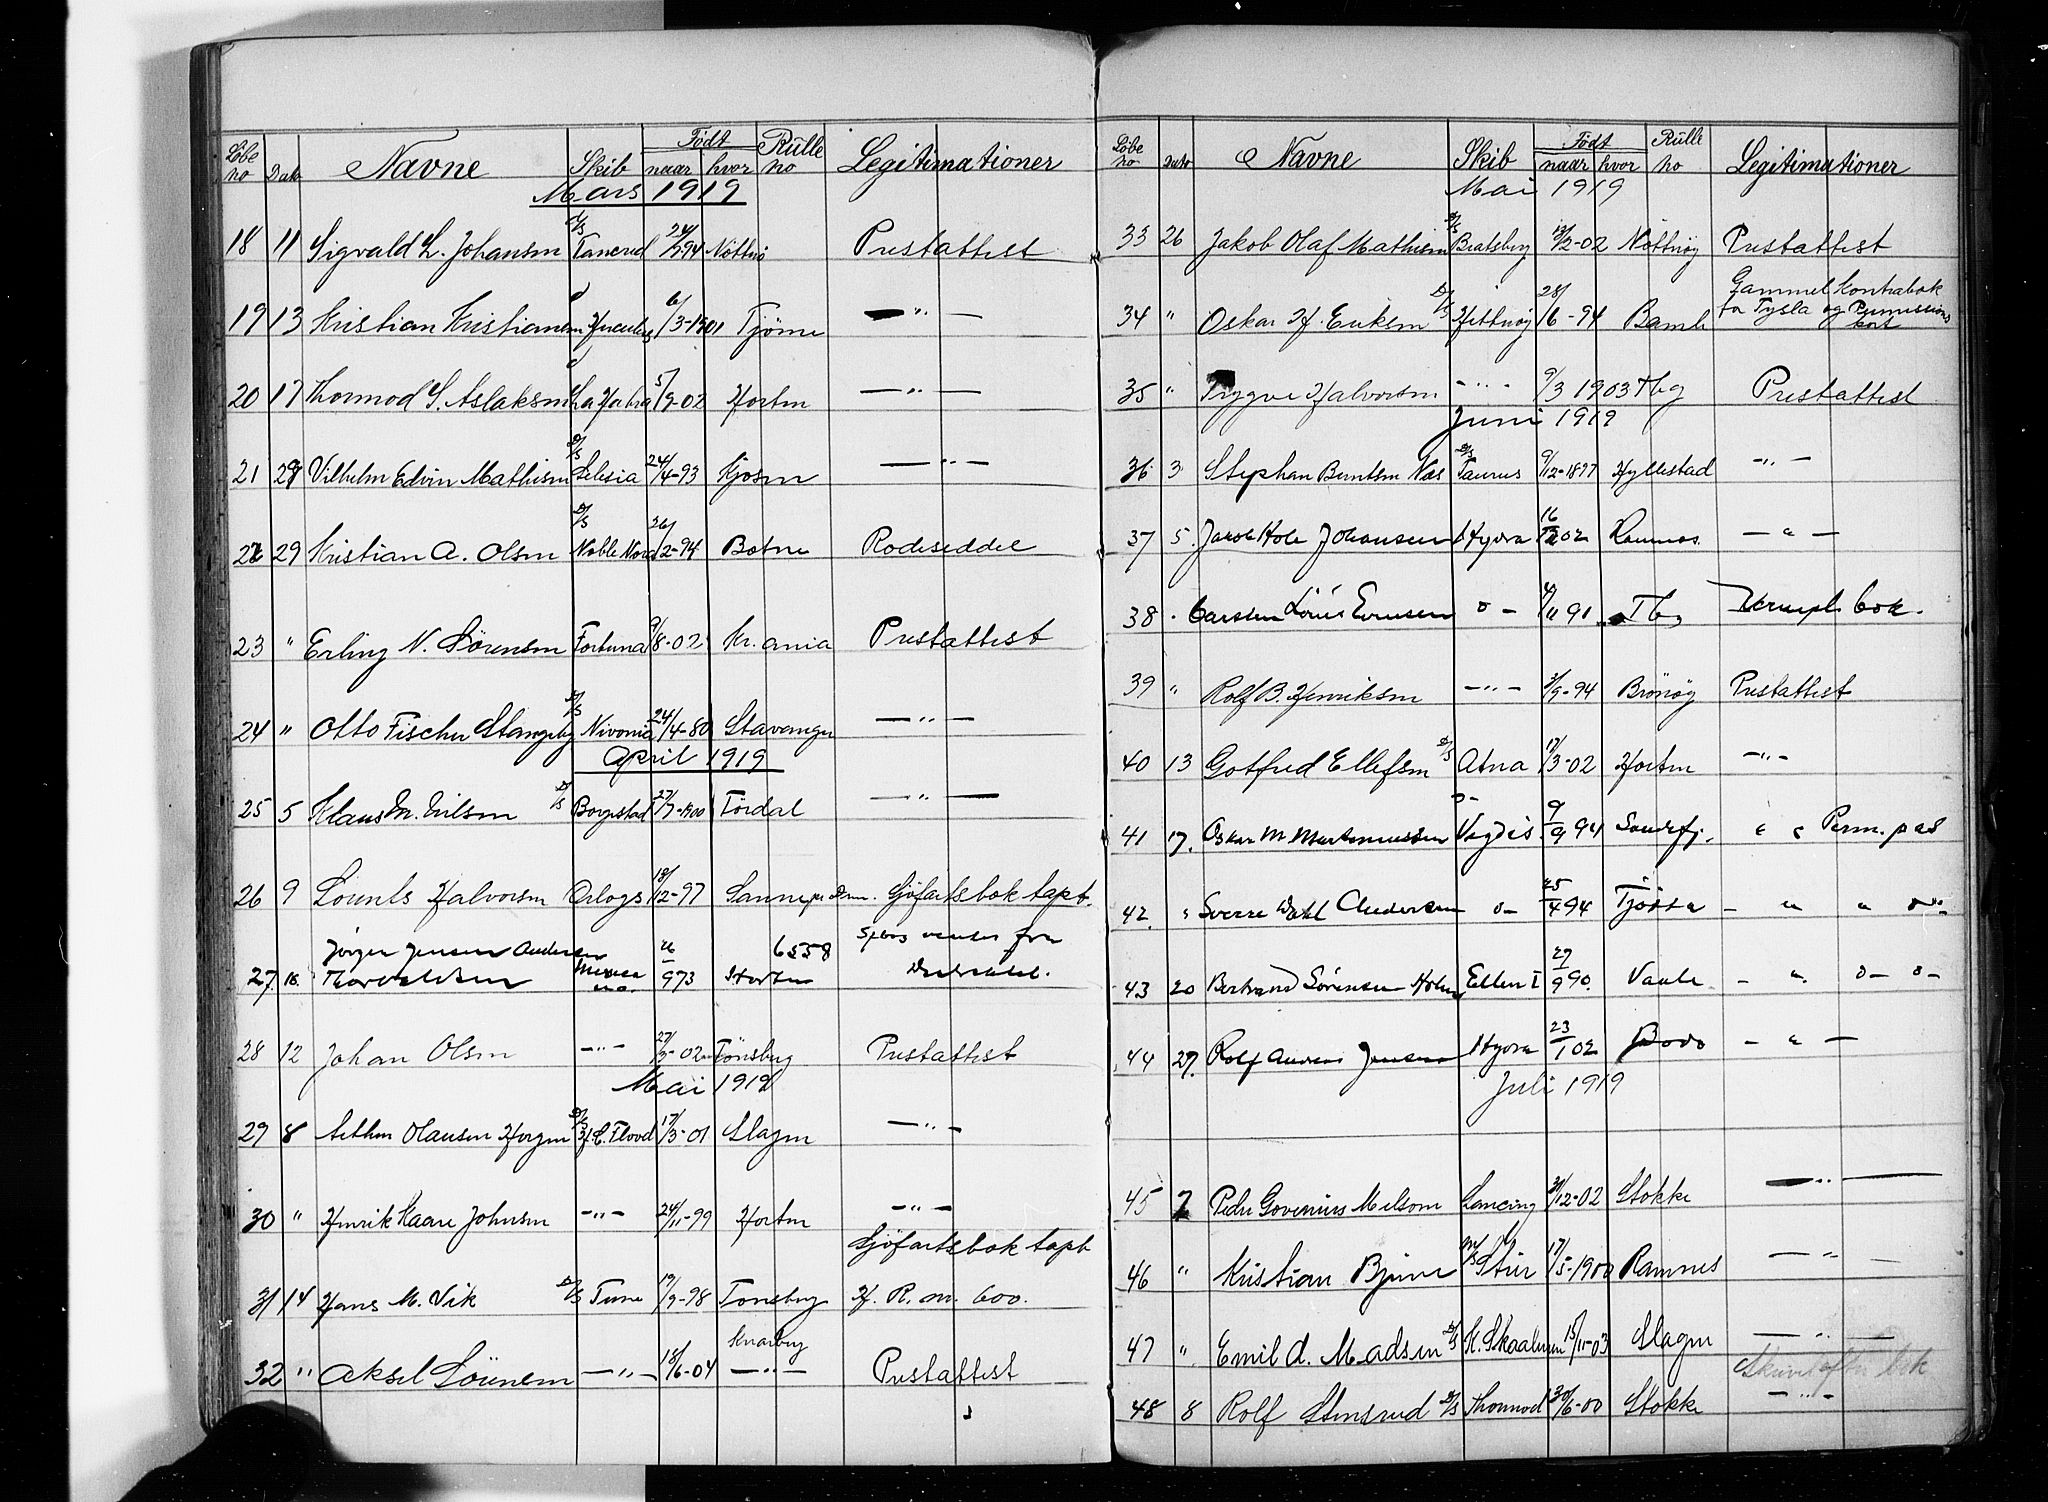 Løbe no Dato Navne Skib Født naar hvor Rulle no Legitimationer
Mars 1919
18 11 Sigvald L. Johansen D/S Tancred 24/7 94 Nøtterø Prestattest
19 13 Kristian Kristiansen Hercules 6/3-1901 Tjøme — " —
20 17 Thormod S. Aslaksen 5/9-02 Horten — " —
21 29 Vilhelm Edvin Mathisen D/S Selesia 24/4-93 Kjosen — " —
22 29 Kristian A. Olsen D/S Noble Nora 26/2-94 Botne Rodeseddel
23 " Erling N. Sørensen Fortuna 9/8-02 Kr.ania Prestattest
24 " Otto Fischer Stangeby D/S Nivonia 24/4-80 Stavanger — " —
April 1919
25 5 Klaus M. Nilsen D/S Borgestad 27/7-1900 Tørdal — " —
26 9 Lorents Halvorsen Orlogs 18/12-97 Sannepr Drm. Sjøfartsbok tapt.
27 10. Jørgen Jensen Andersen 26 6558
Thorvaldsen 973 Horten
28 12 Johan Olsen — " — 27/7-02 Tønsberg Prestattest
Mai 1919
29 8 Arthur Olausen Horgen D/S H.C. Flood 17/3-01 Slagen — " —
30 " Henrik Kaare Johnsen — " — 24/11-99 Horten — " —
Sjøfartsbok tapt
31 14 Hans M. Vik D/S Tune 19/9-98 Tønsberg H. R. m. 600.
Knarberg
32 " Aksel Sørensen — " — 18/6-04 — " — Prestattest
Løbe no Dato Navne Skib Født naar hvor Rulle no Legitimationer
Mai 1919
33 26 Jakob Olaf Mathisen D/S Bratsberg 13/2-02 Nøtterøy Prestattest
Gammel Kontrabok
34 " Oskar H. Eriksen D/S Hitterøy 28/6-94 Bamle for Tysla og Permissions
kort
35 " Trygve Halvorsen — " — 9/3 1903 Tbg Prestattest
Juni 1919
36 3 Stephan Berntsen Næs D/S Taurus 9/12-1897 Hyllestad — " —
37 5. Jakob Hole Johansen Hydra 16/12 02 Ramnes — " —
38 " Carsten Louis Evensen o — 4/11 91 Tbg bok.
39 " Rolf B. Henriksen — " — 3/9-94 Brönöy Prestattest
40 13 Gotfred Ellefsen D/S Atna 17/3-02 Horten — " —
41 17. Oskar M Martinussen Vigdis 9/9 94 Sandefj. " " Perm.pas
42. " Sverre Dahl Andersen o — 25/4 94 Tjøtta — " " o —
43 20 Bertrand Sørensen Holm Ellen I 27/9 90. Vaale — " o — o —
44 27. Rolf Andreas Jensen Hydra 23/1 02 Bodo — " —
Juli 1919
45 7 Peder Govenius Melsom Lancing 31/12-02 Stokke — " —
46 " Kristian Bjune M/S Stur 17/5-1900 Ramnes — " —
47 " Emil A. Madsen D/S K. Skaalunen 15/11-03 Slagen — " —
Skrevet efter
48 8 Rolf Stensrud D/S Thormod 30/6-00 Stokke — " —